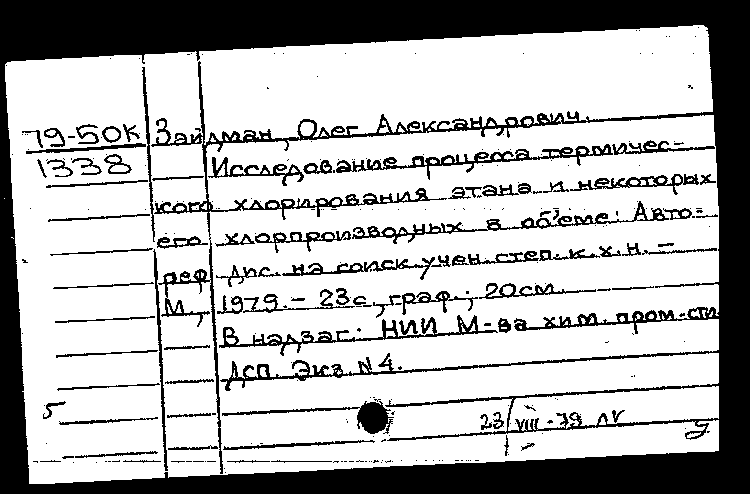 79-50К Зайдман, Олег Александрович.
1338 Исследование процесса термичес-
кого хлорирования этана и некоторых
его хлорпроизводных в объеме: Авто-
реф. дис. на соиск. учен. степ. к. х. н. –
М., 1979. – 23 с., граф.; 20 см.
В надзаг.: НИИ М-ва хим. пром-сти.
Дсп. Экз. N 4.
5
23/VIII - 79